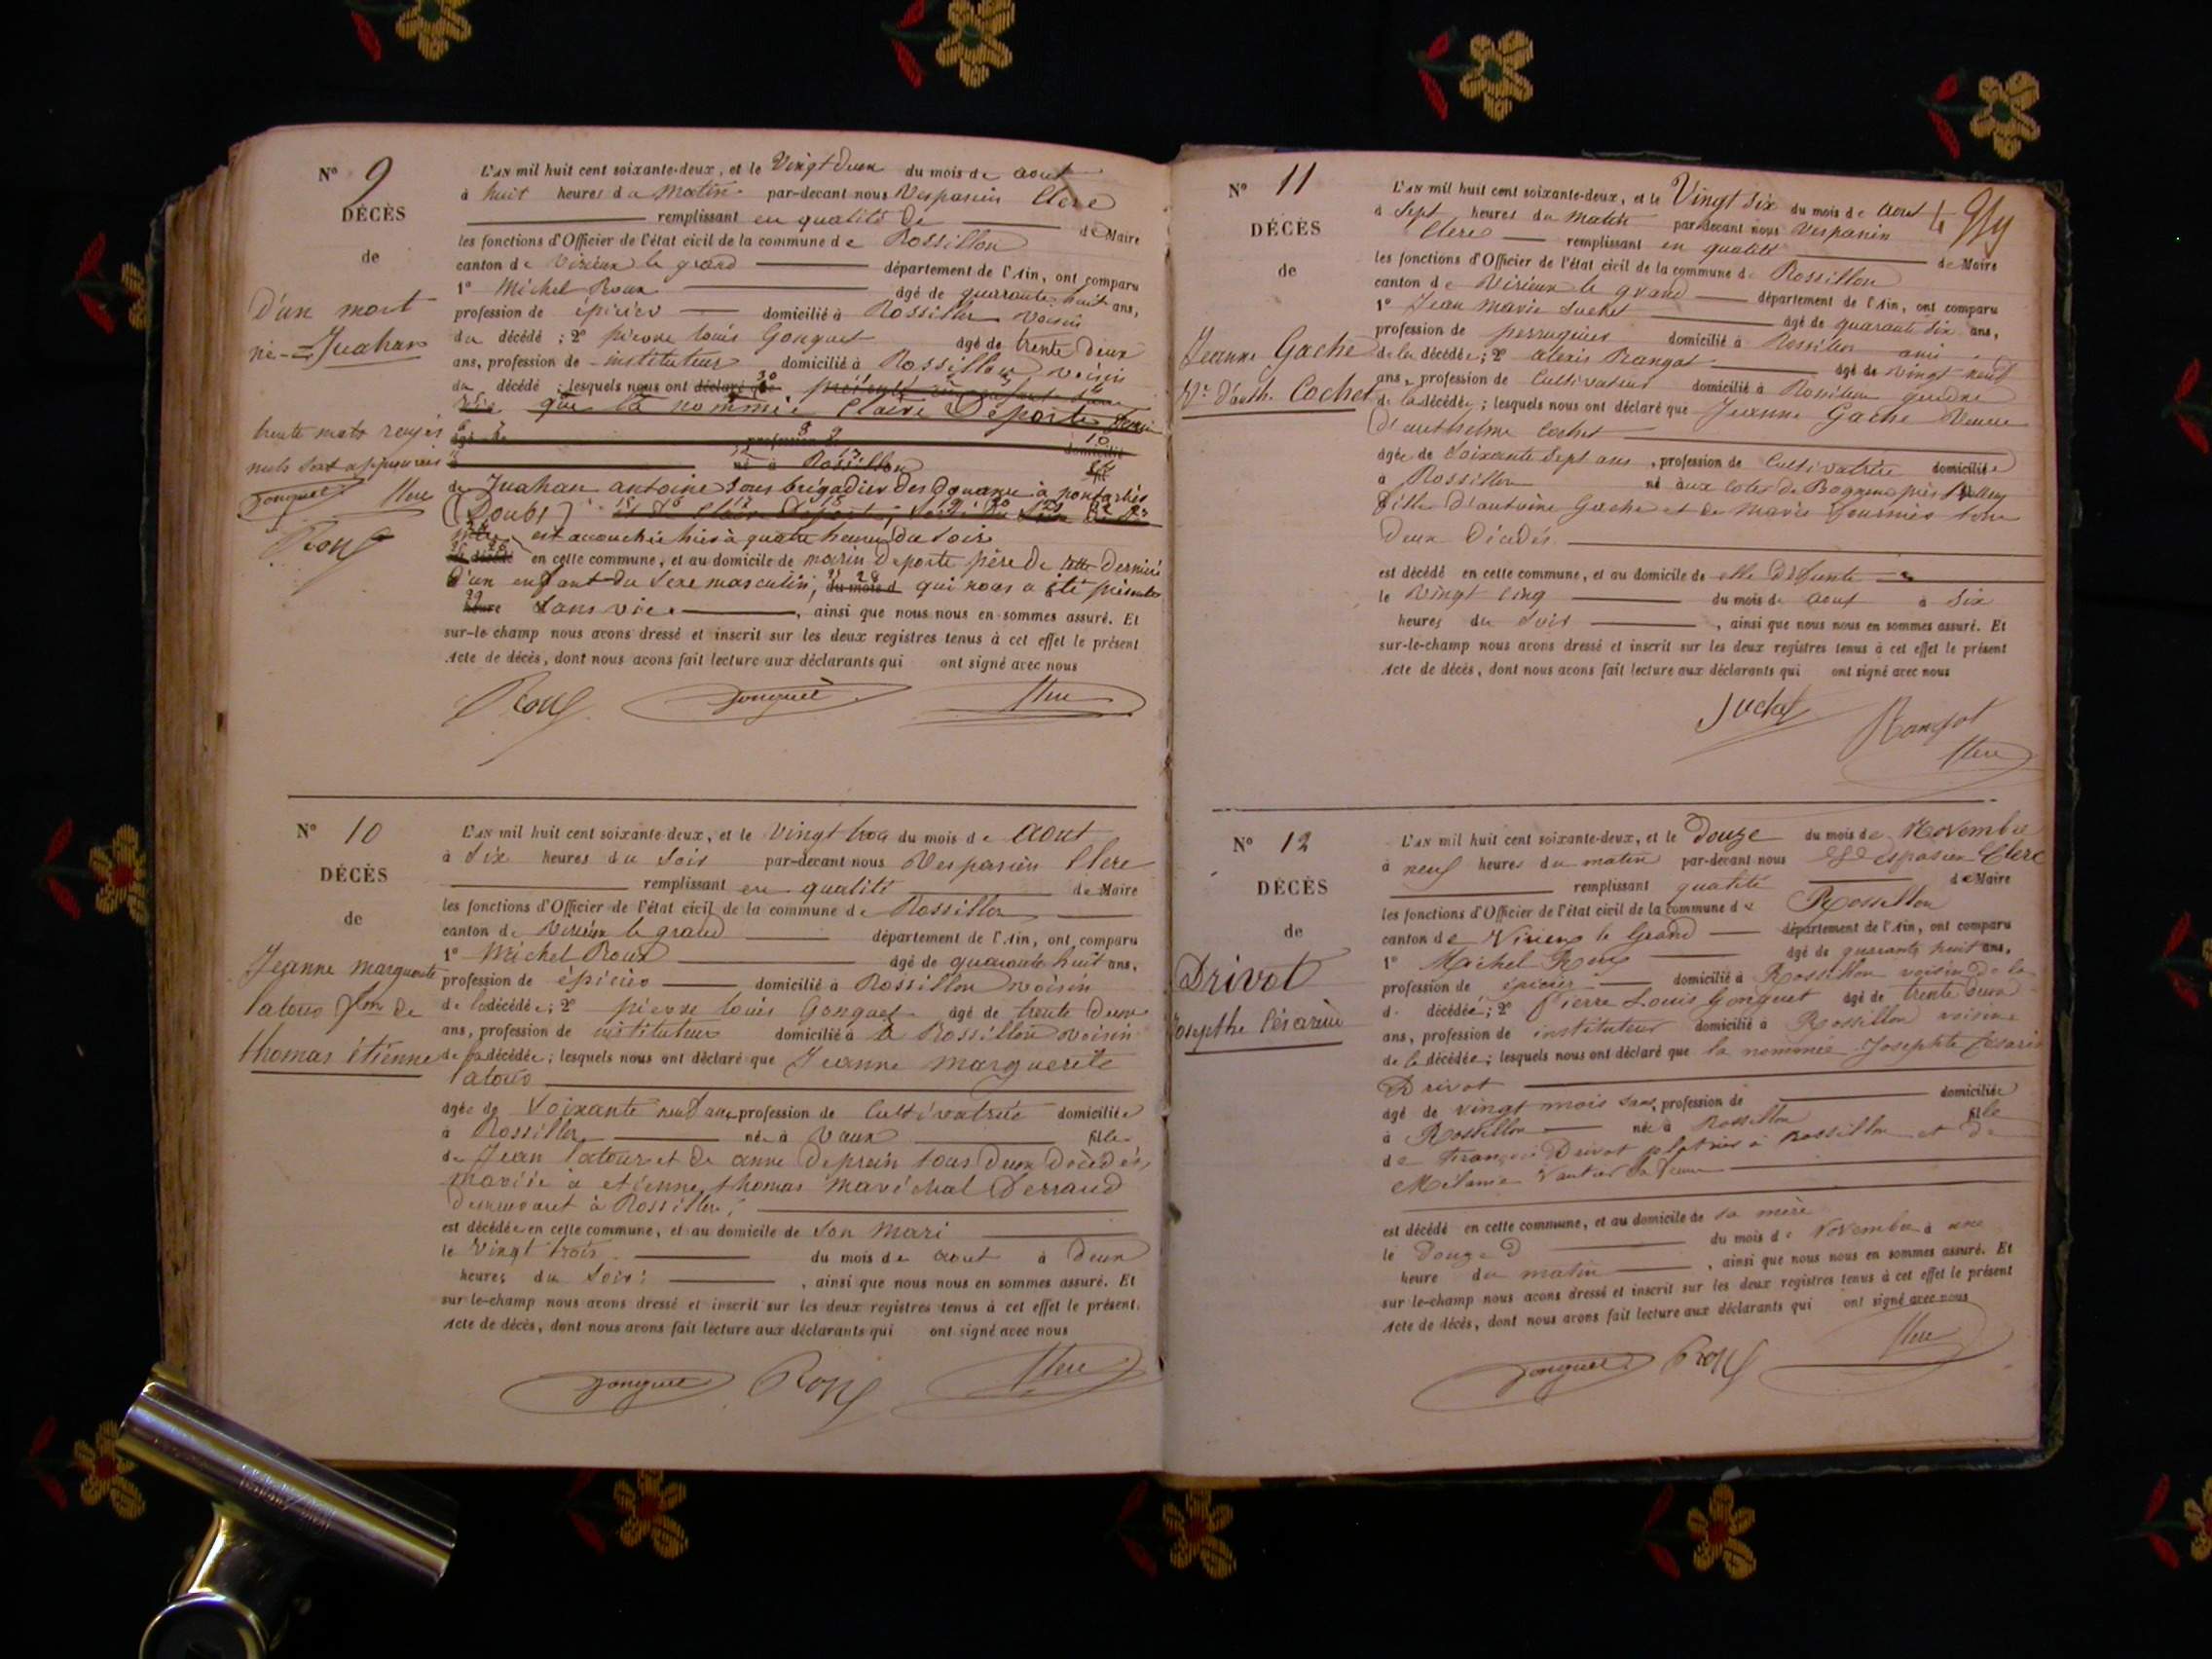 N° 9
DÉCÈS
de
D'un mort
né = Juahan
trente mots rayés
nuls sont approuvés
Gonguet Clerc
Roux
L'AN mil huit cent soixante-deux, et le Vingt deux du mois de aout
à huit heures du matin par-devant nous Vespasien Clerc
remplissant en qualité de de Maire
les fonctions d'Officier de l'état civil de la commune de Rossillon
canton de Virieux le grand département de l'Ain, ont comparu
1° Michel Roux âgé de quarante huit ans,
profession de épicier domicilié à Rossillon voisin
du décédé ; 2° pierre louis Gonguet âgé de trente deux
ans, profession de instituteur domicilié à Rossillon voisin
du décédé ; lesquels nous ont déclaré que
que la nommée Claire Déporte
âgé de profession domicilié
né à Rossillon
de Juahan antoine sous brigadier des douanes à
(Doubs)
est accouchée hier à quatre heures du soir
en cette commune, et au domicile de marin Deporte père de cette dernière
d'un enfant du sexe masculin, du mois d qui nous a été présenté
heure sans vie , ainsi que nous nous en sommes assuré. Et
sur-le champ nous avons dressé et inscrit sur les deux registres tenus à cet effet le présent
Acte de décès, dont nous avons fait lecture aux déclarants qui ont signé avec nous
Roux Gonguet Clerc
N° 10
DÉCÈS
de
Jeanne marguerite
latour fme de
thomas étienne
L'AN mil huit cent soixante-deux, et le vingt trois du mois de Aout
à Six heures du soir par-devant nous Vespasien Clerc
remplissant en qualité de Maire
les fonctions d'Officier de l'état civil de la commune de Rossillon
canton de Virieux le grand département de l'Ain, ont comparu
1° Michel Roux âgé de quarante huit ans,
profession de épicier domicilié à Rossillon voisin
de la décédée ; 2° pierre louis Gonguet âgé de trente deux
ans, profession de instituteur domicilié à Rossillon voisin
de la décédée ; lesquels nous ont déclaré que Jeanne marguerite
latour
âgée de Soixante neuf ans, profession de Cultivatrice domiciliée
à Rossillon née à Vaux fille
de Jean latour et de anne Deprein tous deux décédés,
mariée à etienne thomas maréchal ferrand
demeurant à Rossillon,
est décédée en cette commune, et au domicile de son mari
le vingt trois du mois de aout à deux
heures du soir , ainsi que nous nous en sommes assuré. Et
sur le-champ nous avons dressé et inscrit sur les deux registres tenus à cet effet le présent
Acte de décès, dont nous avons fait lecture aux déclarants qui ont signé avec nous
Gonguet Roux Clerc
N° 11
DÉCÈS
de
Jeanne Gache
Ve d'anth. Cochet
L'AN mil huit cent soixante-deux, et le Vingt Six du mois de Aout
à Sept heures du matin par-devant nous Vespasien
Clerc remplissant en qualité de Maire
les fonctions d'Officier de l'état civil de la commune de Rossillon
canton de Virieux le grand département de l'Ain, ont comparu
1° Jean marie Suchet âgé de quarante six ans,
profession de perruquier domicilié à Rossillon ami
de la décédée ; 2° alexis Rangot âgé de vingt neuf
ans, profession de Cultivateur domicilié à Rossillon gendre
de la décédée ; lesquels nous ont déclaré que Jeanne Gache Veuve
d'anthelme Cochet
âgée de Soixante Sept ans , profession de Cultivatrice domiciliée
à Rossillon né aux cotes de près Belley
fille d'antoine Gache et de marie fournier tous
deux décédés.
est décédé en cette commune, et au domicile de elle défunte
le vingt cinq du mois de aout à six
heures du soir , ainsi que nous nous en sommes assuré. Et
sur-le-champ nous avons dressé et inscrit sur les deux registres tenus à cet effet le présent
Acte de décès, dont nous avons fait lecture aux déclarants qui ont signé avec nous
Suchet Rangot
Clerc
N° 12
DÉCÈS
de
Drivot
Josephte Césarine
L'AN mil huit cent soixante-deux, et le douze du mois de Novembre
à neuf heures du matin par-devant nous Vespasien Clerc
remplissant qualité de Maire
les fonctions d'Officier de l'état civil de la commune de Rossillon
canton de Virieux le Grand département de l'Ain, ont comparu
1° Michel Roux âgé de quarante huit ans,
profession de épicier domicilié à Rossillon voisin de la
d. décédée ; 2° Pierre Louis Gonguet âgé de trente deux
ans, profession de instituteur domicilié à Rossillon voisin
de la décédée ; lesquels nous ont déclaré que la nommée Josephte Césarine
Drivot
âgé de vingt mois sans profession de domiciliée
à Rossillon née à Rossillon fille
de François Drivot platrier à Rossillon et de
Mélanie sa femme
est décédé en cette commune, et au domicile de sa mère
le Douze du mois de Novembre à une
heure du matin , ainsi que nous nous en sommes assuré. Et
sur le-champ nous avons dressé et inscrit sur les deux registres tenus à cet effet le présent
Acte de décès, dont nous avons fait lecture aux déclarants qui ont signé avec nous
Gonguet Roux Clerc